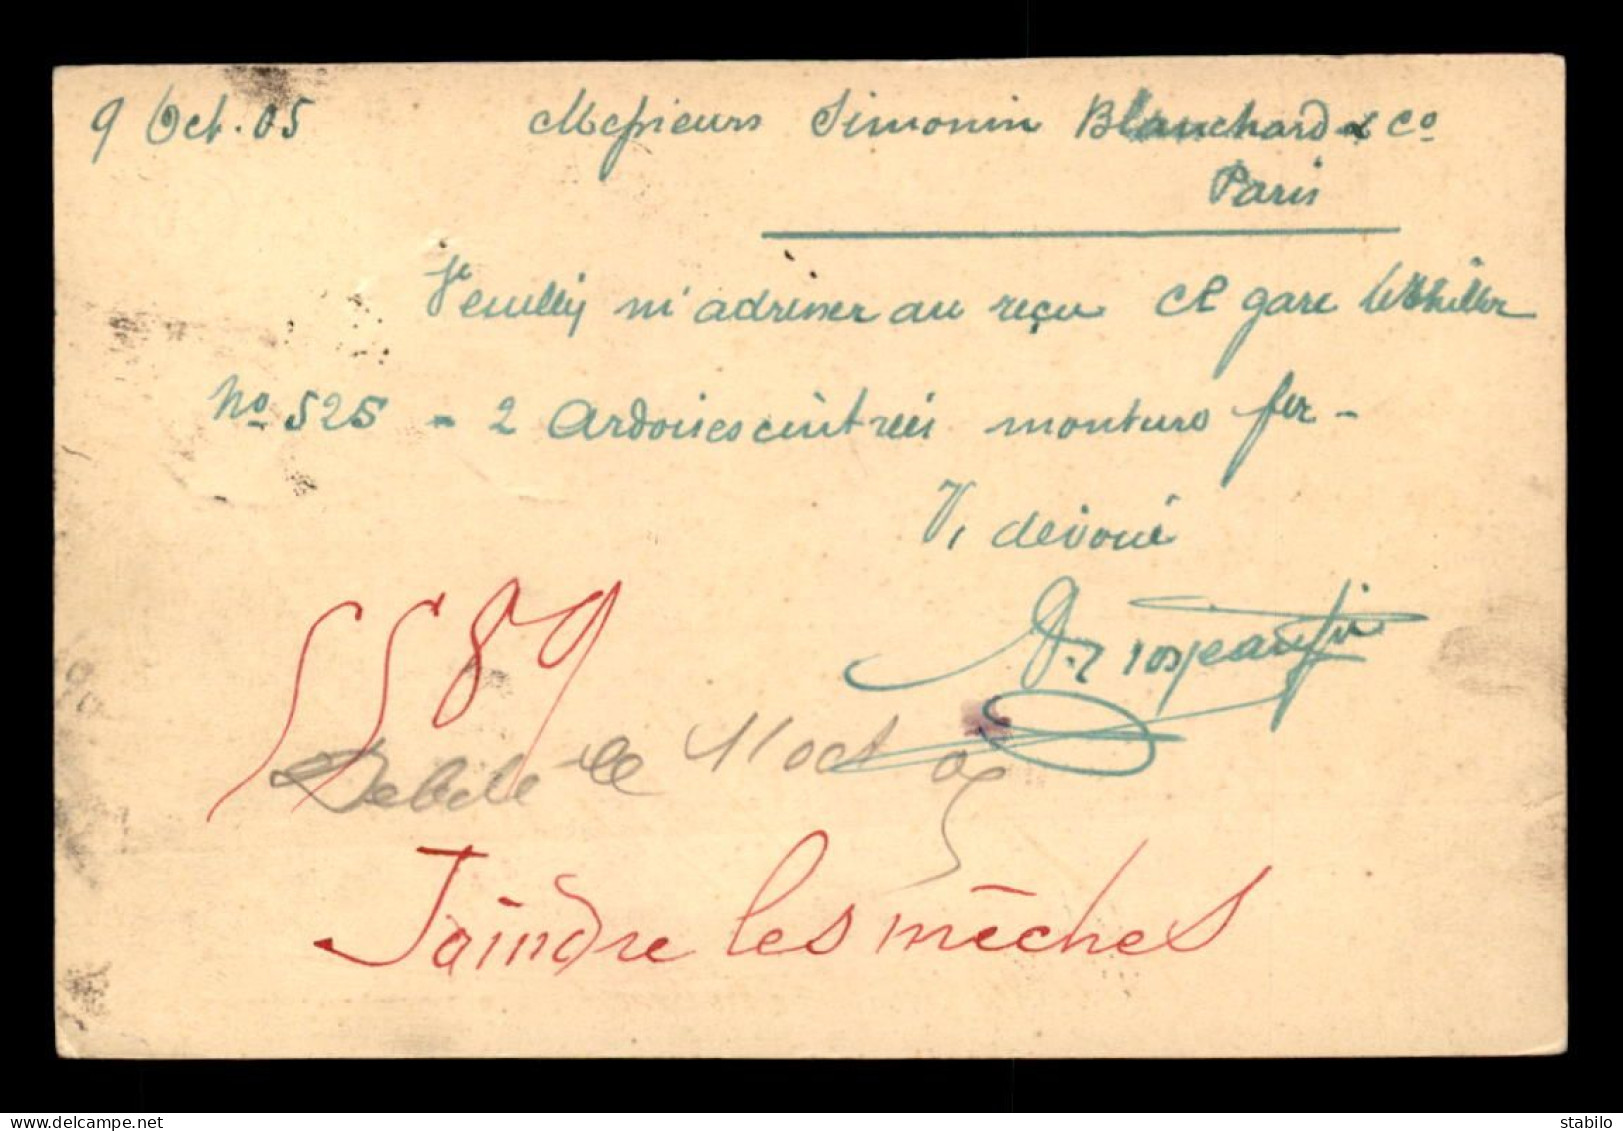 9 Oct. 05 Messieurs Simonin Blanchard & Co
Paris
Veuillez m'adresser au reçu gare le Thillot
No 525 - 2 Ardoises cintrées monture fer -
V. dévoué
5589
Debité le 11 oct 05
Joindre les mèches
stabilo